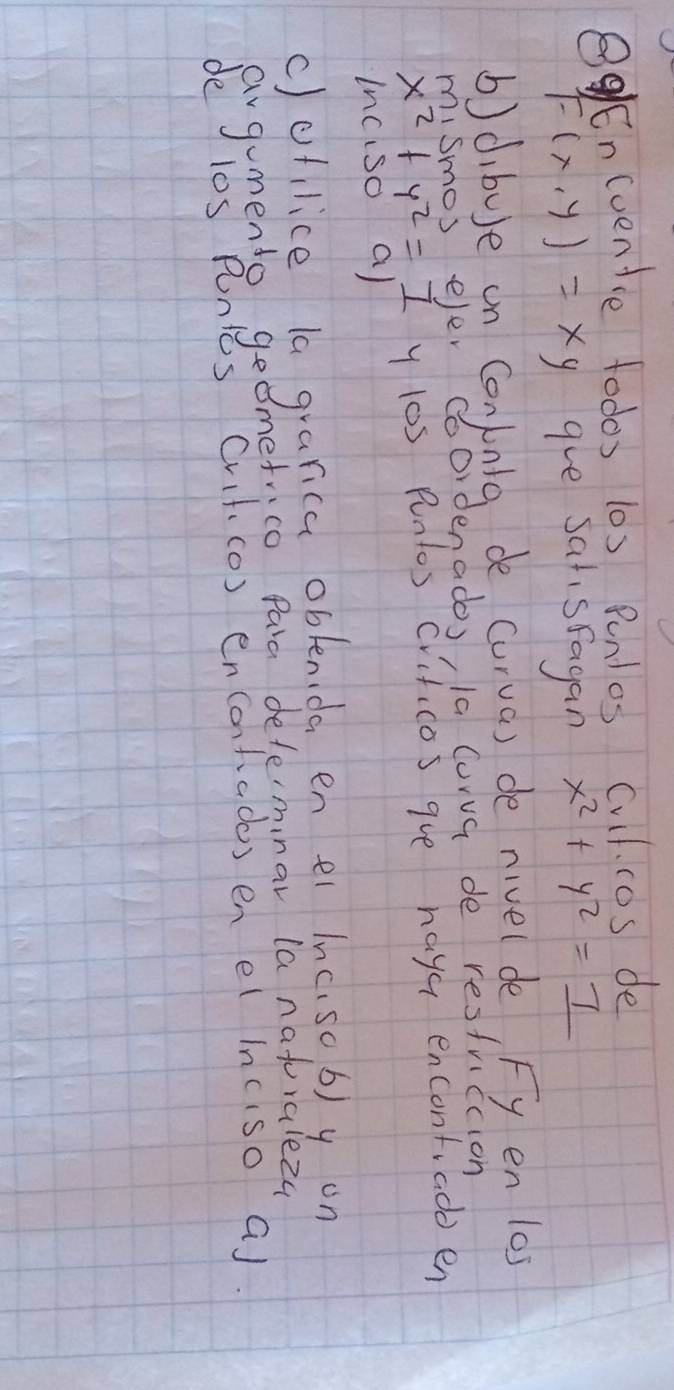 8 a) Encuentre todos los Puntos Criticos de
F(x,y) = xy que satisfagan x² + y² = 1
b) dibuje un Conjunto de curvas de nivel de F y en los
mismos ejer coordenados, la curva de restriccion
x² + y² = 1 y los Puntos criticos que haya encontrado en
inciso a)
c) utilice la grafica obtenida en el inciso b) y un
argumento geometrico Para determinar la naturaleza
de los Puntos Criticos encontrados en el inciso a).